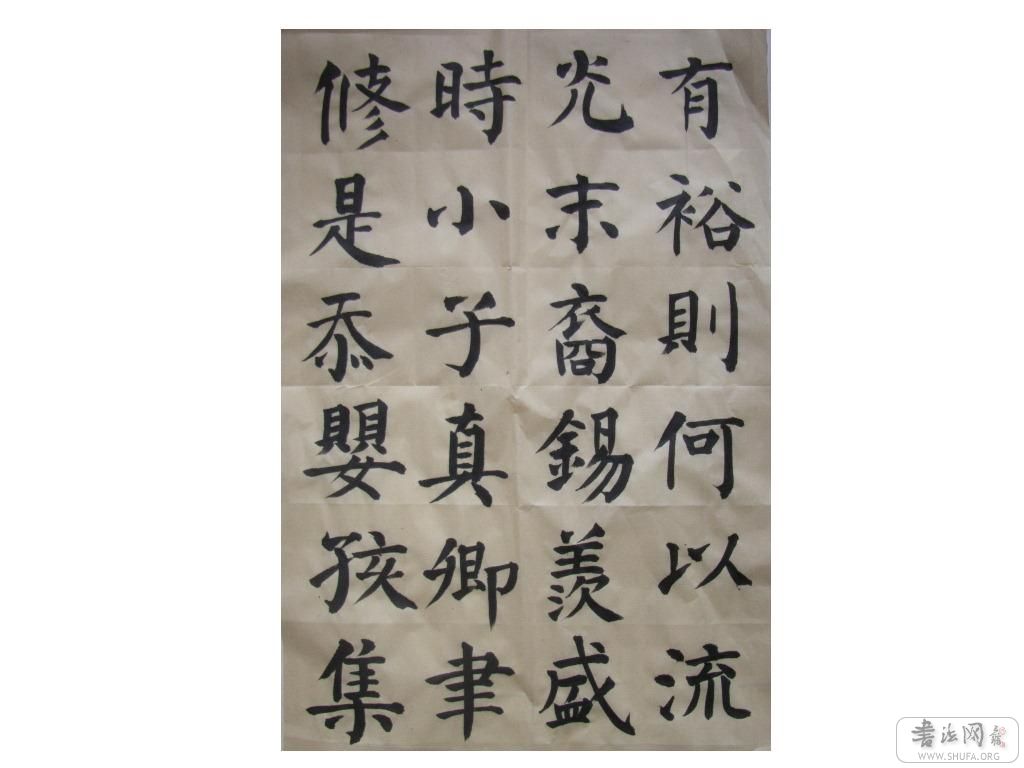 有裕則何以流
光末裔錫羨盛
時小子真卿聿
修是忝嬰孩集
書法网
WWW.SHUFA.ORG